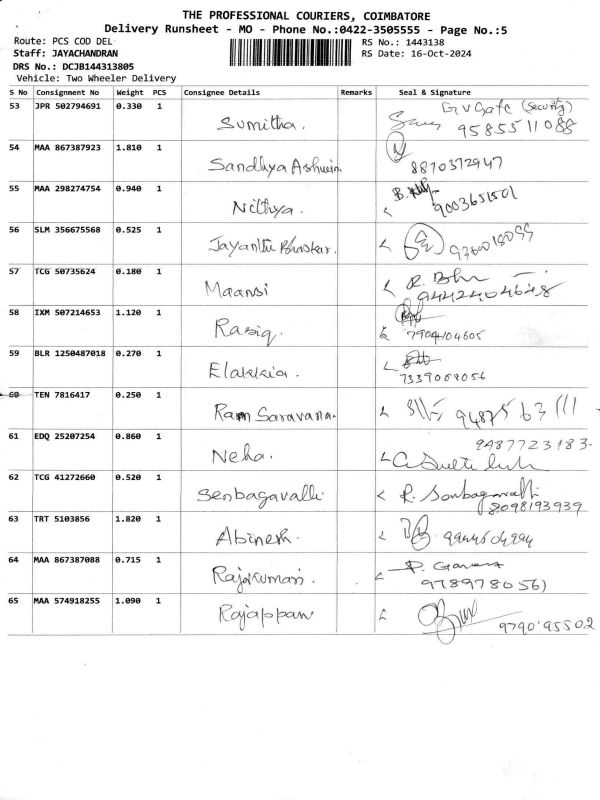 THE PROFESSIONAL COURIERS, COIMBATORE
Delivery Runsheet - MO - Phone No.:0422-3505555 - Page No.:5
Route: PCS COD DEL
RS No.: 1443138
Staff: JAYACHANDRAN
RS Date: 16-Oct-2024
DRS No.: DCJB144313805
Vehicle: Two Wheeler Delivery
S No Consignment No Weight PCS Consignee Details Remarks Seal & Signature
53 JPR 502794691 0.330 1 Sumitha. GV Gate (Security)
9585511088
54 MAA 867387923 1.810 1 Sandhya Ashwin
8870372947
55 MAA 298274754 0.940 1 Nithya.
9003651501
56 SLM 356675568 0.525 1 Jayanthi Bhaskar.
57 TCG 50735624 0.180 1 Maansi
58 IXM 507214653 1.120 1 Rasiq.
7904104605
59 BLR 1250487018 0.270 1 Elakkia.
7339068056
60 TEN 7816417 0.250 1 Ram Saravana.
61 EDQ 25207254 0.860 1 Neha. 9487723183.
62 TCG 41272660 0.520 1 Senbagavalli R. Senbagavalli
8098193939
63 TRT 5103856 1.820 1 Abinesh.
64 MAA 867387088 0.715 1 Rajkumari.
65 MAA 574918255 1.090 1 Rajappan
9790'95502